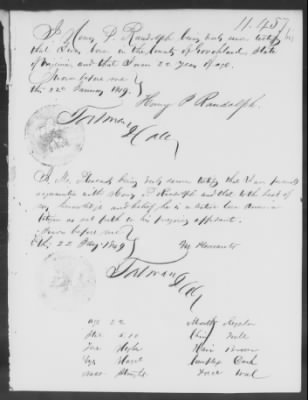 11.457
I Henry P. Randolph being duly sworn certify
that I was born in the County of Goochland State
of Virginia, and that I am 22 years of age.
Sworn before me
this 22d January 1849.
Henry P Randolph.
being duly sworn certify that I am
acquainted with Henry P Randolph and that to the best of
my knowledge and belief, he is a native born American
Citizen as set forth in his foregoing affidavit.
Sworn before me
this 22 Jany 1849
age 22 Mouth Regular
Chin
Hair Brown
Eyes Hazel Complex Dark
Nose Straight Face Oval